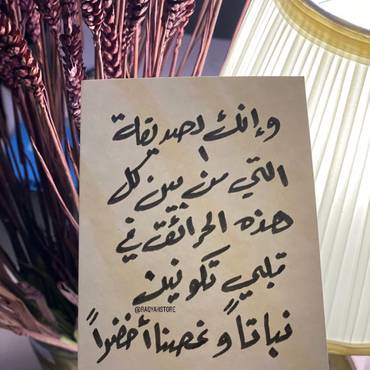 وإنك لصديقة
التي من بين كل
هذه الحرائق في
قلبي تكونين
@RAQYAHSTORE
نباتاً وغصنا أخضراً